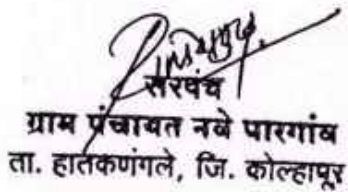 सरपंच
ग्राम पंचायत नवे पारगांव
ता. हातकणंगले, जि. कोल्हापूर